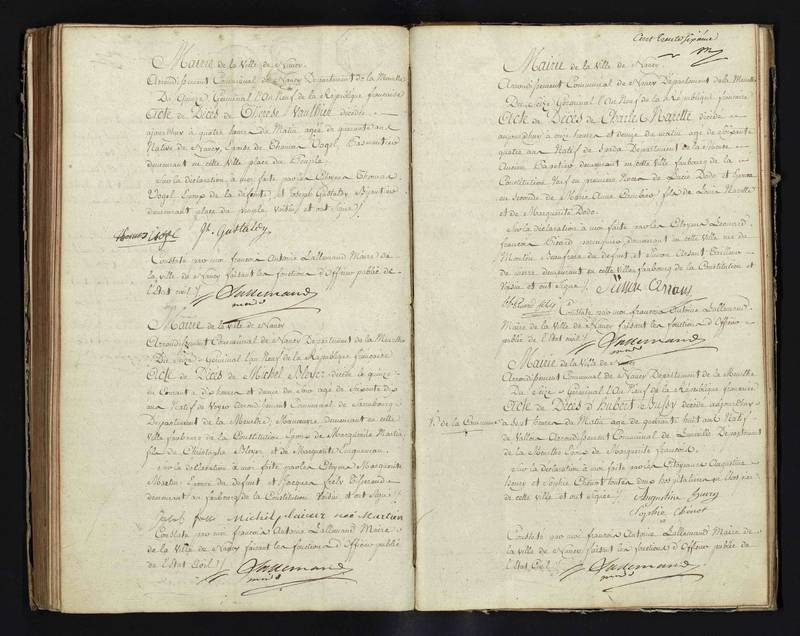 Mairie de la Ville de Nancy.
Arrondissement Communal de Nancy Département de la Meurthe
Du Quinze Germinal l'An Neuf de la République française
Acte de Décès de Thérèse Vauthier décédée
aujourd'hui à quatre heures du Matin agée de quarante ans
Native de Nancy, Epouse de Thomas Vogel, Passementier
demeurant en cette ville place du Peuple
Sur la déclaration à moi faite par les Citoyens Thomas
Vogel Epoux de la défunte, et Joseph Gustaldy, Bijoutier
demeurant place du peuple Voisin et ont signé
Thomas Vogel Jh. Gustaldy
Constaté par moi françois Antoine Lallemand Maire de
la ville de Nancy faisant les fonctions d'Officier public de
l'Etat civil
Lallemand
maire
Mairie de la Ville de Nancy
Arrondissement Communal de Nancy Département de la Meurthe
Du Seize Germinal l'an Neuf de la République française
Acte de Décès de Michel Bloyer décédé le quinze
du Courant à dix heures et demie du soir agé de soixante dix
ans Natif de Voyer arrondissement Communal de Sarrebourg
Département de la Meurthe, Manœuvre, demeurant en cette
ville faubourg de la Constitution Epoux de Marguerite Martin
fils de Christophe Bloyer et de Marguerite
Sur la déclaration à moi faite par les Citoyens Marguerite
Martin Epouse du défunt et Jacques Tisserand
demeurant au faubourg de la Constitution Voisin et ont signé
Michel
Constaté par moi françois Antoine Lallemand Maire
de la Ville de Nancy faisant les fonctions d'Officier public
de l'Etat Civil
Lallemand
maire
Cent trente sixième
Mairie de la Ville de Nancy
Arrondissement Communal de Nancy Département de la Meurthe
Du Seize Germinal l'An Neuf de la République française
Acte de Décès de Charles Marette décédé
aujourd'hui à onze heures et demie du matin agé de soixante
quatre ans Natif de Département de la
Ancien demeurant en cette Ville faubourg de la
Constitution Veuf en premières Noces de Lucie Dodo et Epoux
en seconde de Marie Anne fils de Louis Marette
et de Marguerite Dodo.
Sur la déclaration à moi faite par les Citoyens Léonard
françois Picard menuisier demeurant en cette Ville rue du
Montou, Beaufrère du défunt et
demeurant en cette Ville faubourg de la Constitution et
Voisin et ont signé
Constaté par moi françois Antoine Lallemand
Maire de la Ville de Nancy faisant les fonctions d'Officier
public de l'Etat civil
Lallemand
maire
Mairie de la Ville de Nancy
Arrondissement Communal de Nancy Département de la Meurthe
Du Seize Germinal l'An Neuf de la République française
Acte de Décès d'hubert de Bussy décédé aujourd'hui
à sept heures du Matin agé de quarante huit ans Natif
de Vallois Arrondissement Communal de Lunéville Département
de la Meurthe Epoux de Marguerite
Sur la déclaration à moi faite par les Citoyennes Augustine
henry et Sophie Chenot toutes deux hospitalières
de cette ville et ont signées
Augustine henry
Sophie Chenot
Constaté par moi françois Antoine Lallemand Maire de
la ville de Nancy faisant les fonctions d'Officier public de
l'Etat Civil
Lallemand
maire